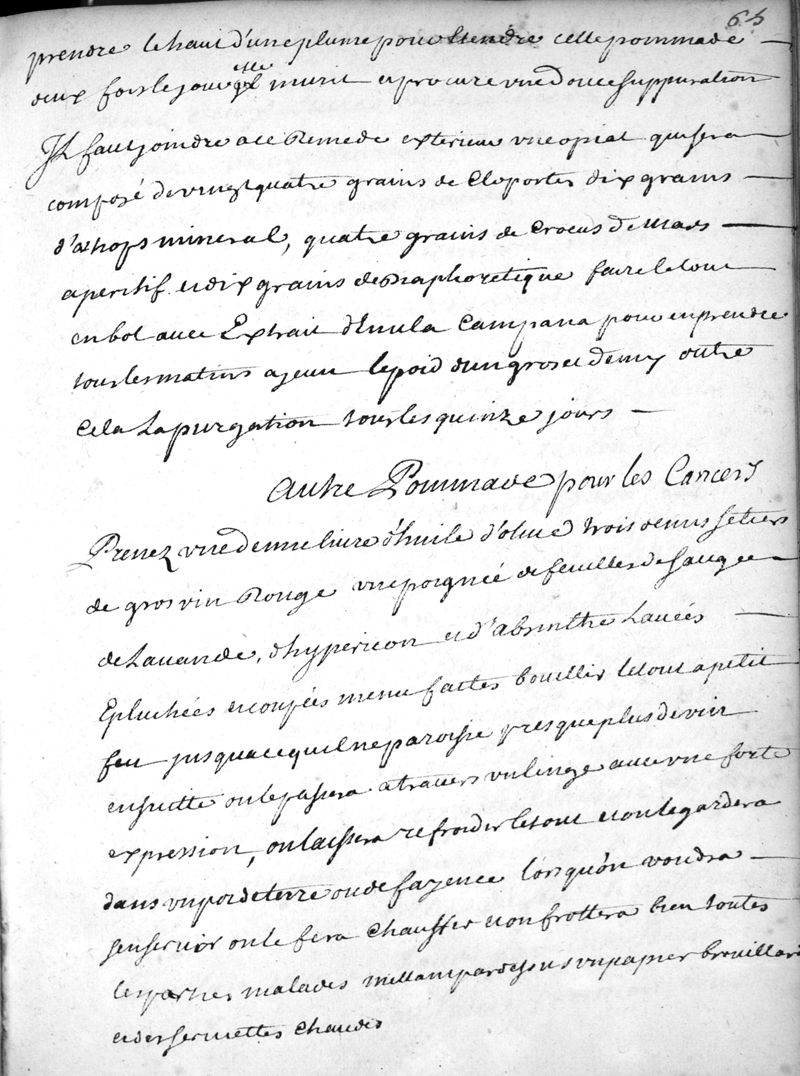 65
prendre le haut d'une plume pour etendre cette pommade
deux fois le jour elle murit et procure une douce suppuration
Il faut joindre a ce Remede exterieur une opiat qui sera
composé de vingt quatre grains de Cloportes dix grains
d'æthops mineral, quatre grains de Crocus de Mars
aperitif et dix grains de Diaphoretique faire le tout
en bol avec Extrait d'Enula Campana pour en prendre
tous les matins a jeun le poid d'un gros et demy outre
Cela La purgation tous les quinze jours
Autre Pommade pour les Cancers
Prenez une demie livre d'huile d'olive trois demis setiers
de gros vin Rouge une poignée de feuilles de Sauge
de Lavande, d'hypericon et d'absinthe Lavées
Epluchées et coupées menu faites bouillir le tout a petit
feu jusqu'a ce qu'il ne paroisse presque plus de vin
ensuitte on le passera a travers un linge avec une forte
expression, on laissera refroidir le tout et on le gardera
dans un pot de terre ou de fayence lorsqu'on voudra
s'en servir on le fera chauffer et on frottera bien toutes
les parties malades mettant par dessus un papier brouillard
et des serviettes chaudes